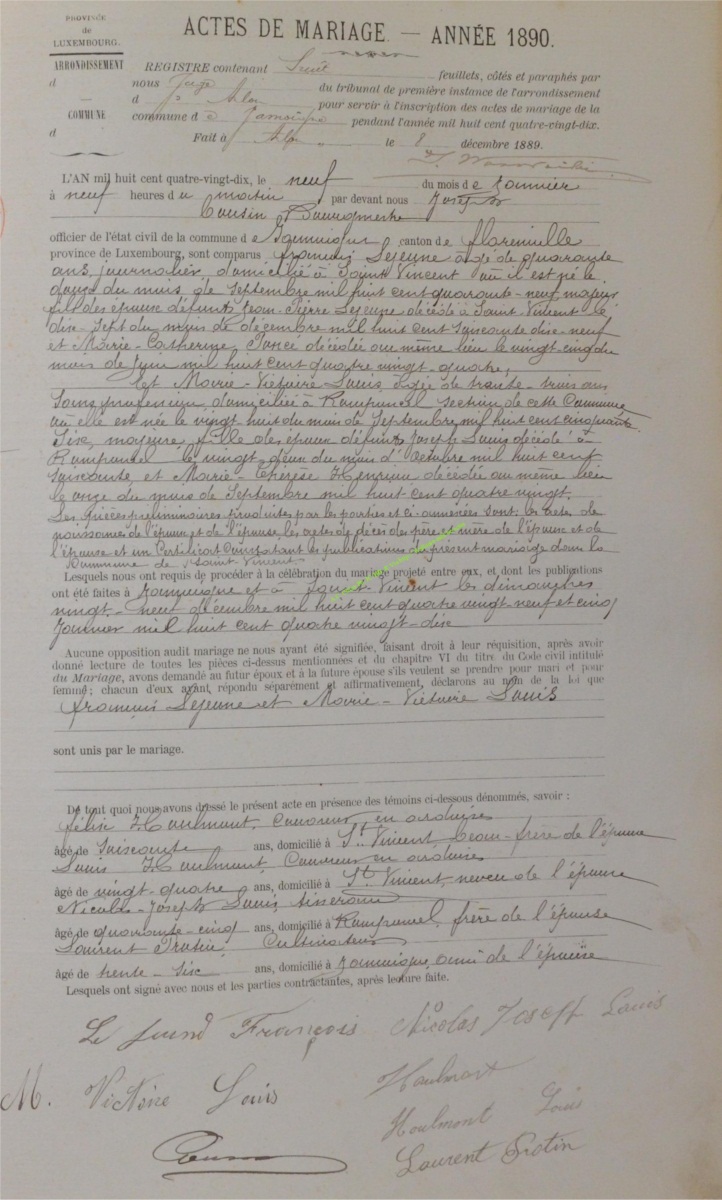 PROVINCE
de
LUXEMBOURG.
ARRONDISSEMENT
d
COMMUNE
d
ACTES DE MARIAGE. — ANNÉE 1890.
REGISTRE contenant huit feuillets, côtés et paraphés par
nous Juge du tribunal de première instance de l'arrondissement
d Arlon pour servir à l'inscription des actes de mariage de la
commune d e Jamoigne pendant l'année mil huit cent quatre-vingt-dix.
Fait à Arlon le 8 décembre 1889.
L'AN mil huit cent quatre-vingt-dix, le neuf du mois de Janvier
à neuf heures du matin par devant nous Joseph
Cousin Bourgmestre
officier de l'état civil de la commune de Jamoigne canton de Florenville
province de Luxembourg, sont comparus François Lejeune âgé de quarante
ans, journalier domicilié à Saint Vincent où il est né le
douze du mois de Septembre mil huit cent quarante-neuf majeur
fils des époux défunts Jean-Pierre Lejeune décédé à Saint Vincent le
dix-sept du mois de décembre mil huit cent soixante dix-neuf
et Marie-Catherine décédée au même lieu le vingt-cinq du
mois de Juin mil huit cent quatre vingt-quatre,
Et Marie-Victoire Louis, âgée de trente-trois ans
Sans profession domiciliée à Romponcel section de cette Commune
où elle est née le vingt huit du mois de Septembre mil huit cent cinquante
Six, majeure, fille des époux défunts Joseph Louis décédé à
Romponcel le vingt-deux du mois d'Octobre mil huit cent
soixante et Marie-Thérèse Henrion décédée au même lieu
le onze du mois de Septembre mil huit cent quatre vingt.
Les pièces préliminaires produites par les parties et ci-annexées sont: les actes de
naissances de l'époux et de l'épouse, les actes de décès des père et mère de l'époux et de
l'épouse et un Certificat Constatant les publications du présent mariage dans la
Commune de Saint Vincent
Lesquels nous ont requis de procéder à la célébration du mariage projeté entre eux, et dont les publications
ont été faites à Jamoigne et à Saint-Vincent les dimanches
vingt-neuf décembre mil huit cent quatre vingt-neuf et cinq
Janvier mil huit cent quatre vingt-dix
Aucune opposition audit mariage ne nous ayant été signifiée, faisant droit à leur réquisition, après avoir
donné lecture de toutes les pièces ci-dessus mentionnées et du chapitre VI du titre du Code civil intitulé
du Mariage, avons demandé au futur époux et à la future épouse s'ils veulent se prendre pour mari et pour
femme; chacun d'eux ayant répondu séparément et affirmativement, déclarons au nom de la loi que
François Lejeune et Marie-Victoire Louis
sont unis par le mariage.
De tout quoi nous avons dressé le présent acte en présence des témoins ci-dessous dénommés, savoir :
Félix Houlmont, Couvreur en ardoises
âgé de Soixante ans, domicilié à St. Vincent, beau-frère de l'épouse
Louis Houlmont, Couvreur en ardoises
âgé de vingt-quatre ans, domicilié à St. Vincent, neveu de l'épouse
Nicolas-Joseph Louis, tisserand
âgé de quarante-cinq ans, domicilié à Romponcel, frère de l'épouse
Laurent Protin, Cultivateur
âgé de trente-six ans, domicilié à Jamoigne, ami de l'épouse
Lesquels ont signé avec nous et les parties contractantes, après lecture faite.
François
Nicolas Joseph Louis
M. Victoire Louis
Houlmont
Houlmont Louis
Laurent Protin